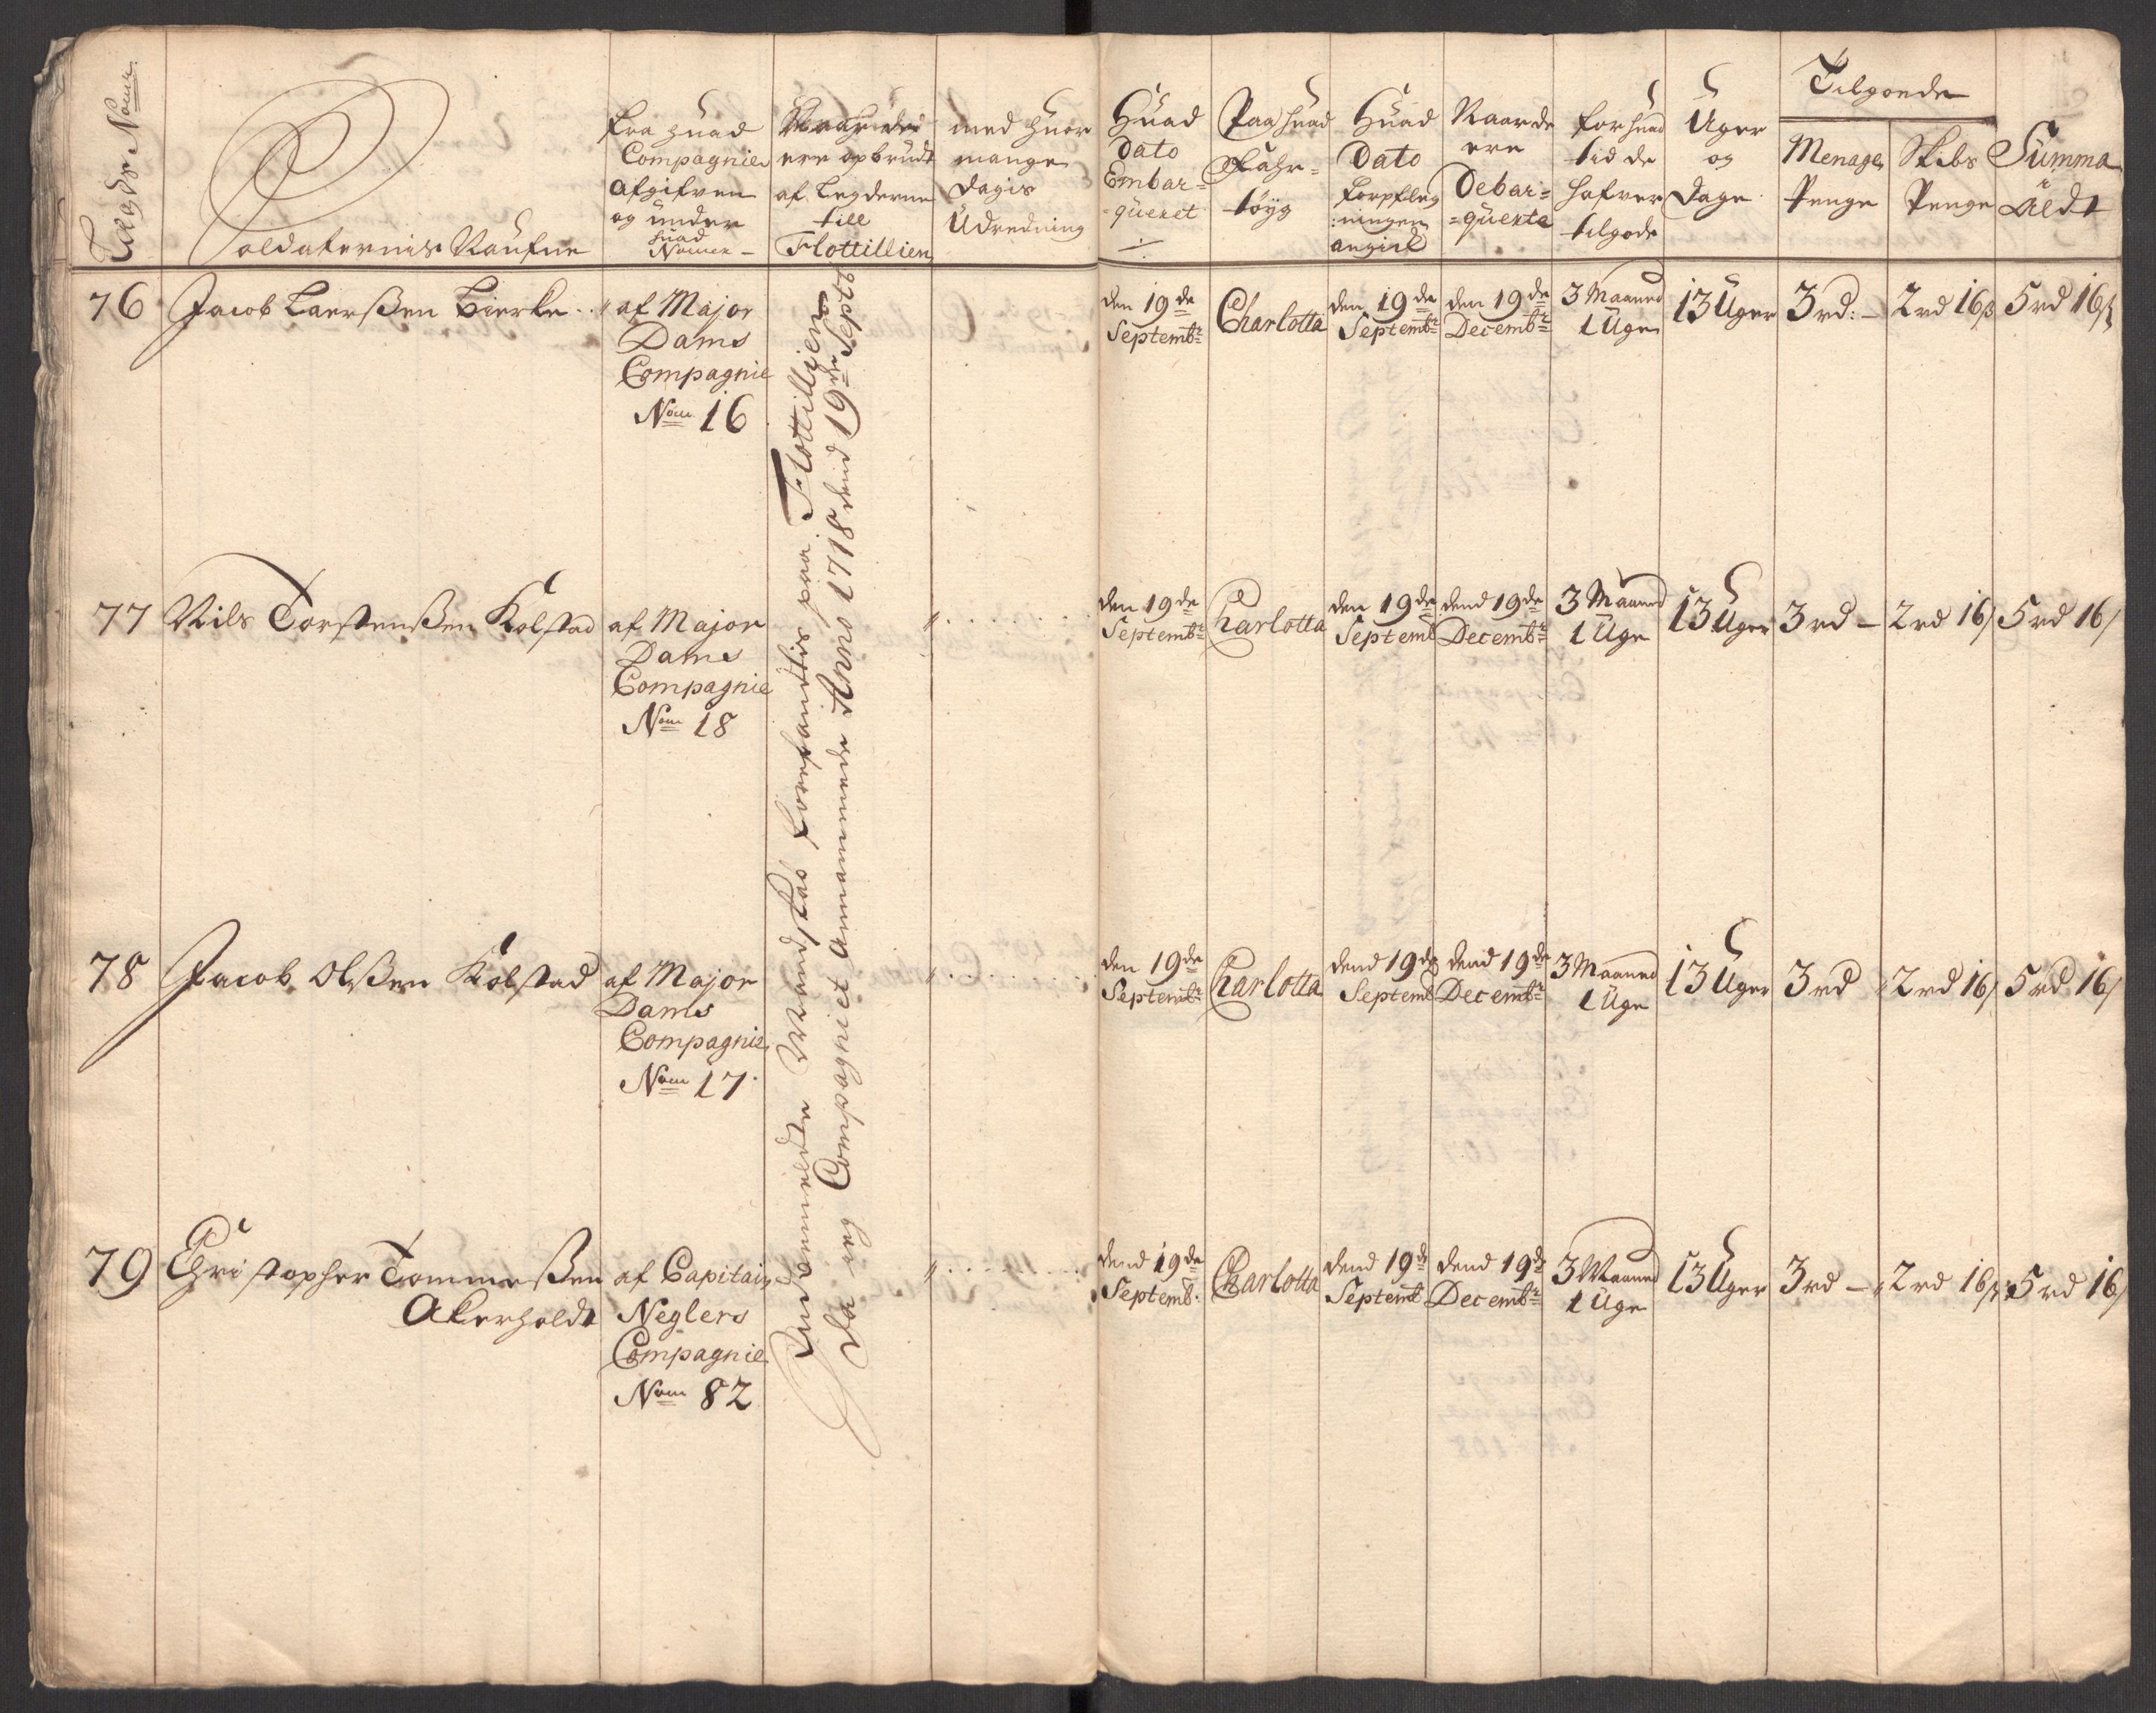 Soldaternis Nafne
fra huad
Compagnie
afgifven
og under
huad
Numer
ere opbrudt
af Legderne
till
Flottillien
med huor
mange
dagis
Udredning
Huad
Dato
Embar=
=queret
Paa huad
Fahr=
töÿg
Huad
Dato
forpfleg
ningen
angick
Naar de
ere
Debar=
=querte
for huad
tid de
hafver
tilgode
Uger
og
dage
Tilgoede
Menage
Penge
Skibs
Penge
Summa
Aldt
76 Jacob Laersßen Bierke
af Major
Dams
Compagnie
Nom 16
den 19de
Septembr
Charlotta
den 19de
Septembr
den 19de
Decembr
3 Maaned
1 Uge
13 Uger
3 rd: –
2 rd 16ß
5 rd 16ß
77 Nils Torstensßen Kolstad
af Major
Dams
Compagnie
Nom 18
den 19de
Septembr
Charlotta
den 19de
Septemb
dend 19de
Decembr
3 Maaned
1 Uge
13 Uger
3 rd –
2 rd 16/
5 rd 16/
78 Jacob Olsßen Kolstad
af Major
Dams
Compagnie
Nom 17
den 19de
Septembr
Charlotta
dend 19de
Septemb
dend 19de
Decembr
3 Maaned
1 Uge
13 Uger
3 rd
2 rd 16/
5 rd 16/
79 Christopher Tommesßen
Akerholdt
af Capitain
Neglers
Compagnie
Nom 82
dend 19de
Septemb:
Charlotta
dend 19de
Septemb
dend 19de
Decembr
3 Maaned
1 Uge
13 Uger
3 rd –
2 rd 16ß
5 rd 16/
Indbemeldte Mandskab forefantis paa Flottillien
da ieg Compagniet annammede Anno 1718 dend 19de Septb